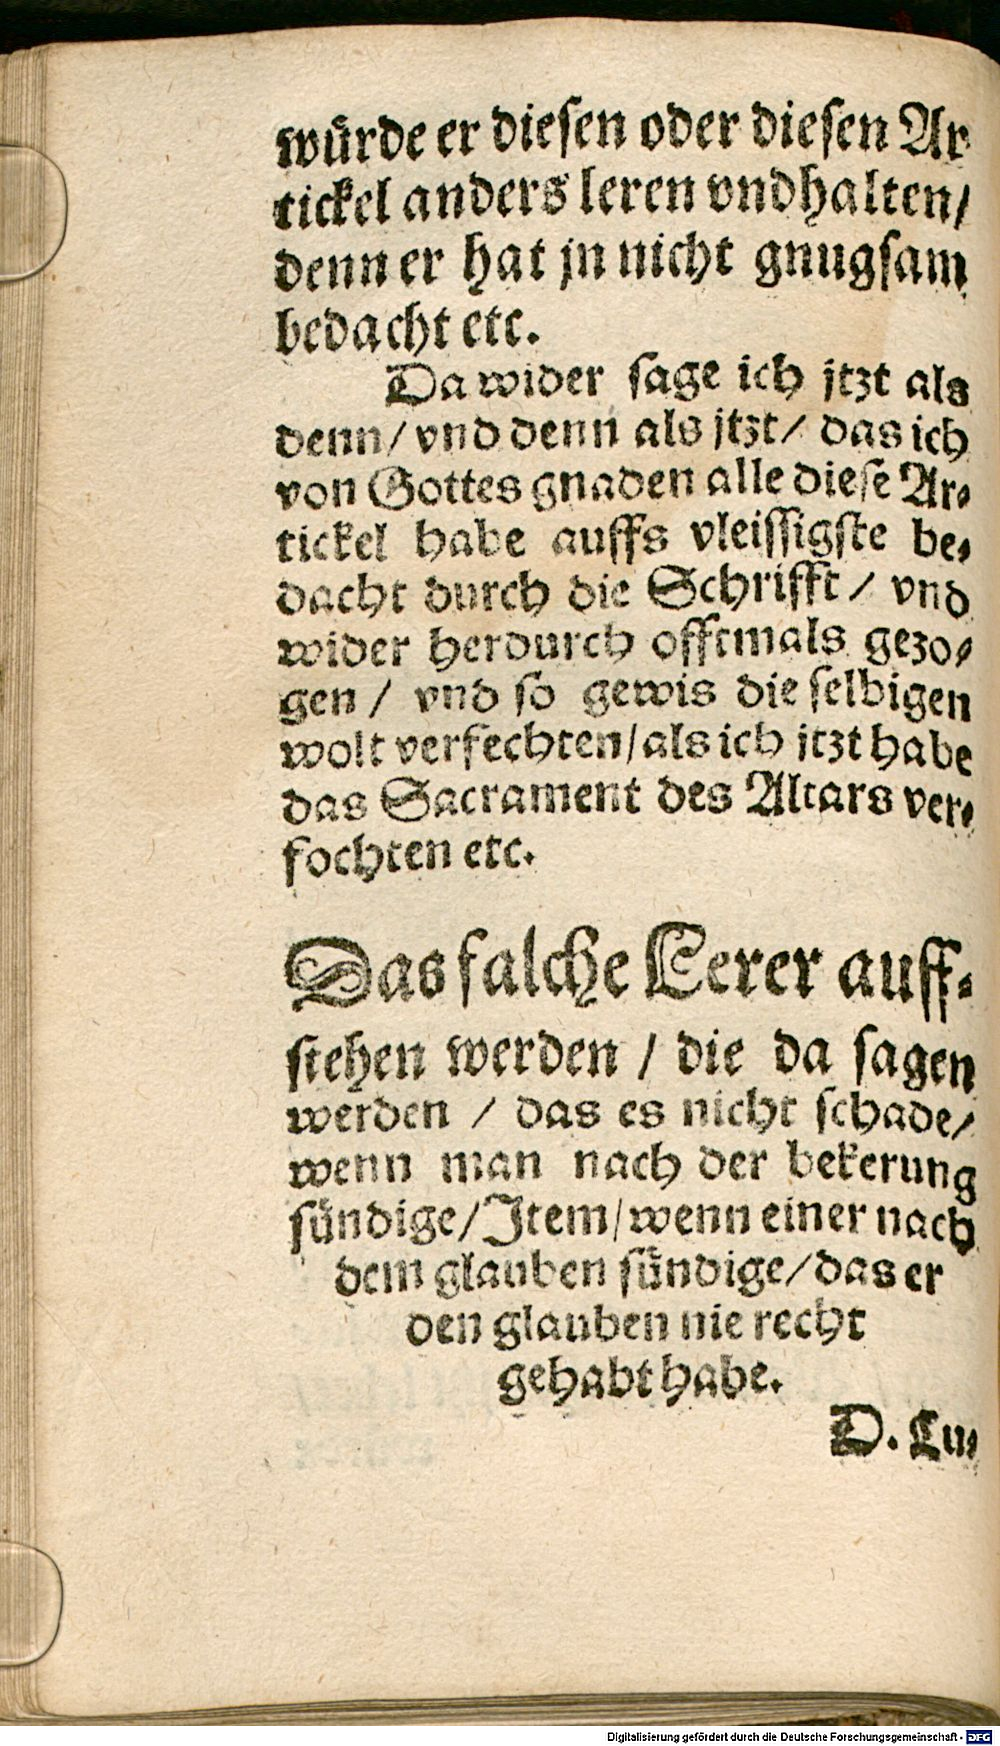 würde er diesen oder diesen Ar
tickel anders leren vnd halten/
denn er hat jn nicht gnugsam
bedacht etc.
Da wider sage ich jtzt als
denn/ vnd denn als jtzt/ das ich
von Gottes gnaden alle diese Ar-
tickel habe auffs vleissigste be-
dacht durch die Schrifft/ vnd
wider herdurch offtmals gezo-
gen/ vnd so gewis die selbigen
wolt verfechten/ als ich jtzt habe
das Sacrament des Altars ver-
fochten etc.
Das falche Lerer auff-
stehen werden/ die da sagen
werden/ das es nicht schade/
wenn man nach der bekerung
sündige/ Item/ wenn einer nach
dem glauben sündige/ das er
den glauben nie recht
gehabt habe.
D. Lu-
Digitalisierung gefördert durch die Deutsche Forschungsgemeinschaft - DFG